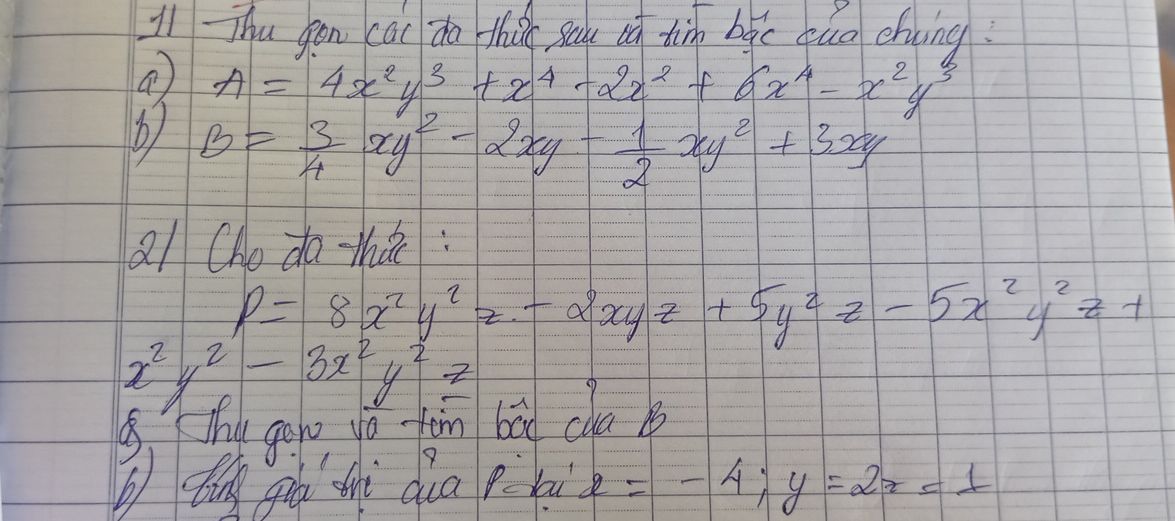 1/ Thu gọn các đa thức sau và tìm bậc của chúng:
a) A = 4x²y³ + x⁴ - 2x² + 6x⁴ - x²y³
b) B = 3/4 xy² - 2xy - 1/2 xy² + 3xy
2/ Cho đa thức:
P = 8x²y²z - 2xyz + 5y²z - 5x²y²z +
x²y² - 3x²y²z
a, Thu gọn và tìm bậc của B
b) Tính giá trị của P tại x = - 4; y = 2z = 1